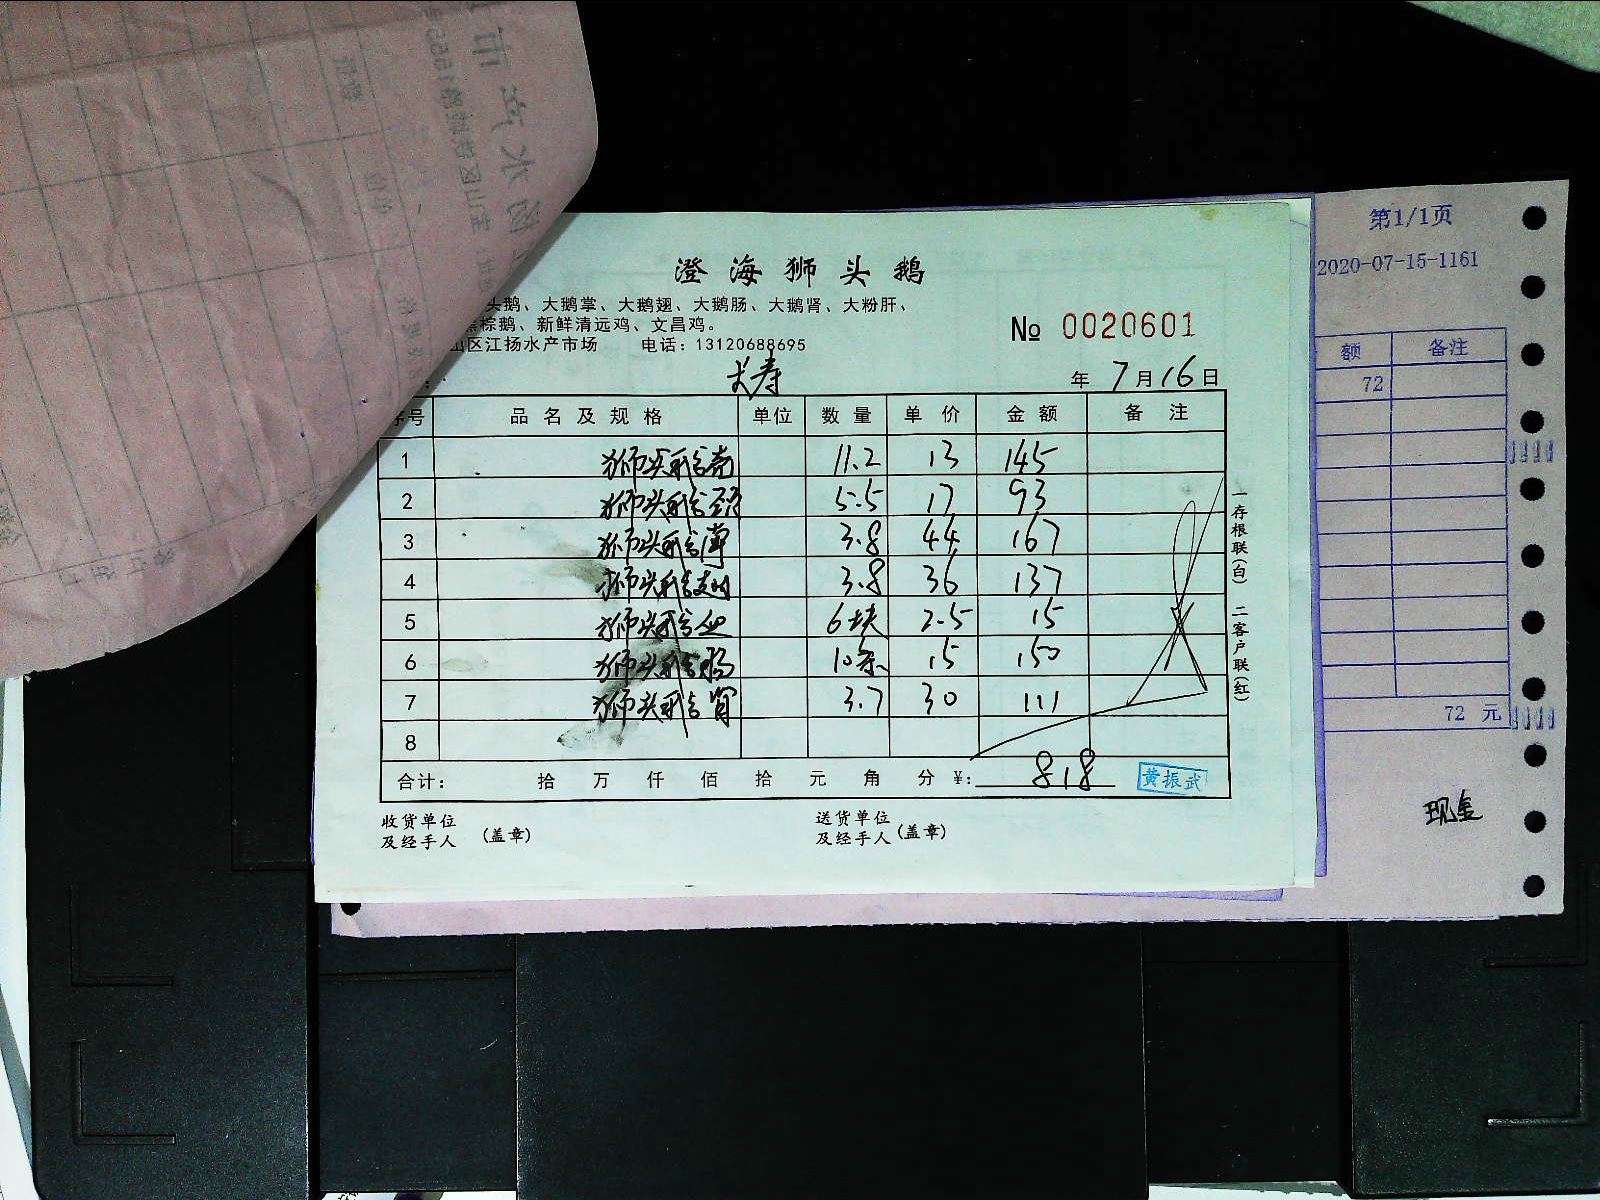 澄海狮头鹅
头鹅、大鹅掌、大鹅翅、大鹅肠、大鹅肾、大粉肝、
棕鹅、新鲜清远鸡、文昌鸡。
山区江扬水产市场 电话：13120688695
№ 0020601
长寿 年 7月16日
序号 品名及规格 单位 数量 单价 金额 备注
1 狮头鹅壳 11.2 13 145
2 狮头鹅颈 5.5 17 93
3 狮头鹅 3.8 44 167
4 狮头鹅 3.8 36 137
5 狮头鹅血 6块 2.5 15
6 狮头鹅肠 10条 15 150
7 狮头鹅肾 3.7 30 111
8
合计： 拾 万 仟 佰 拾 元 角 分 ¥： 818 黄振武
收货单位
及经手人 (盖章)
送货单位
及经手人 (盖章)
一存根联(白) 二客户联(红)
第1/1页
2020-07-15-1161
额 备注
72
72 元
现金